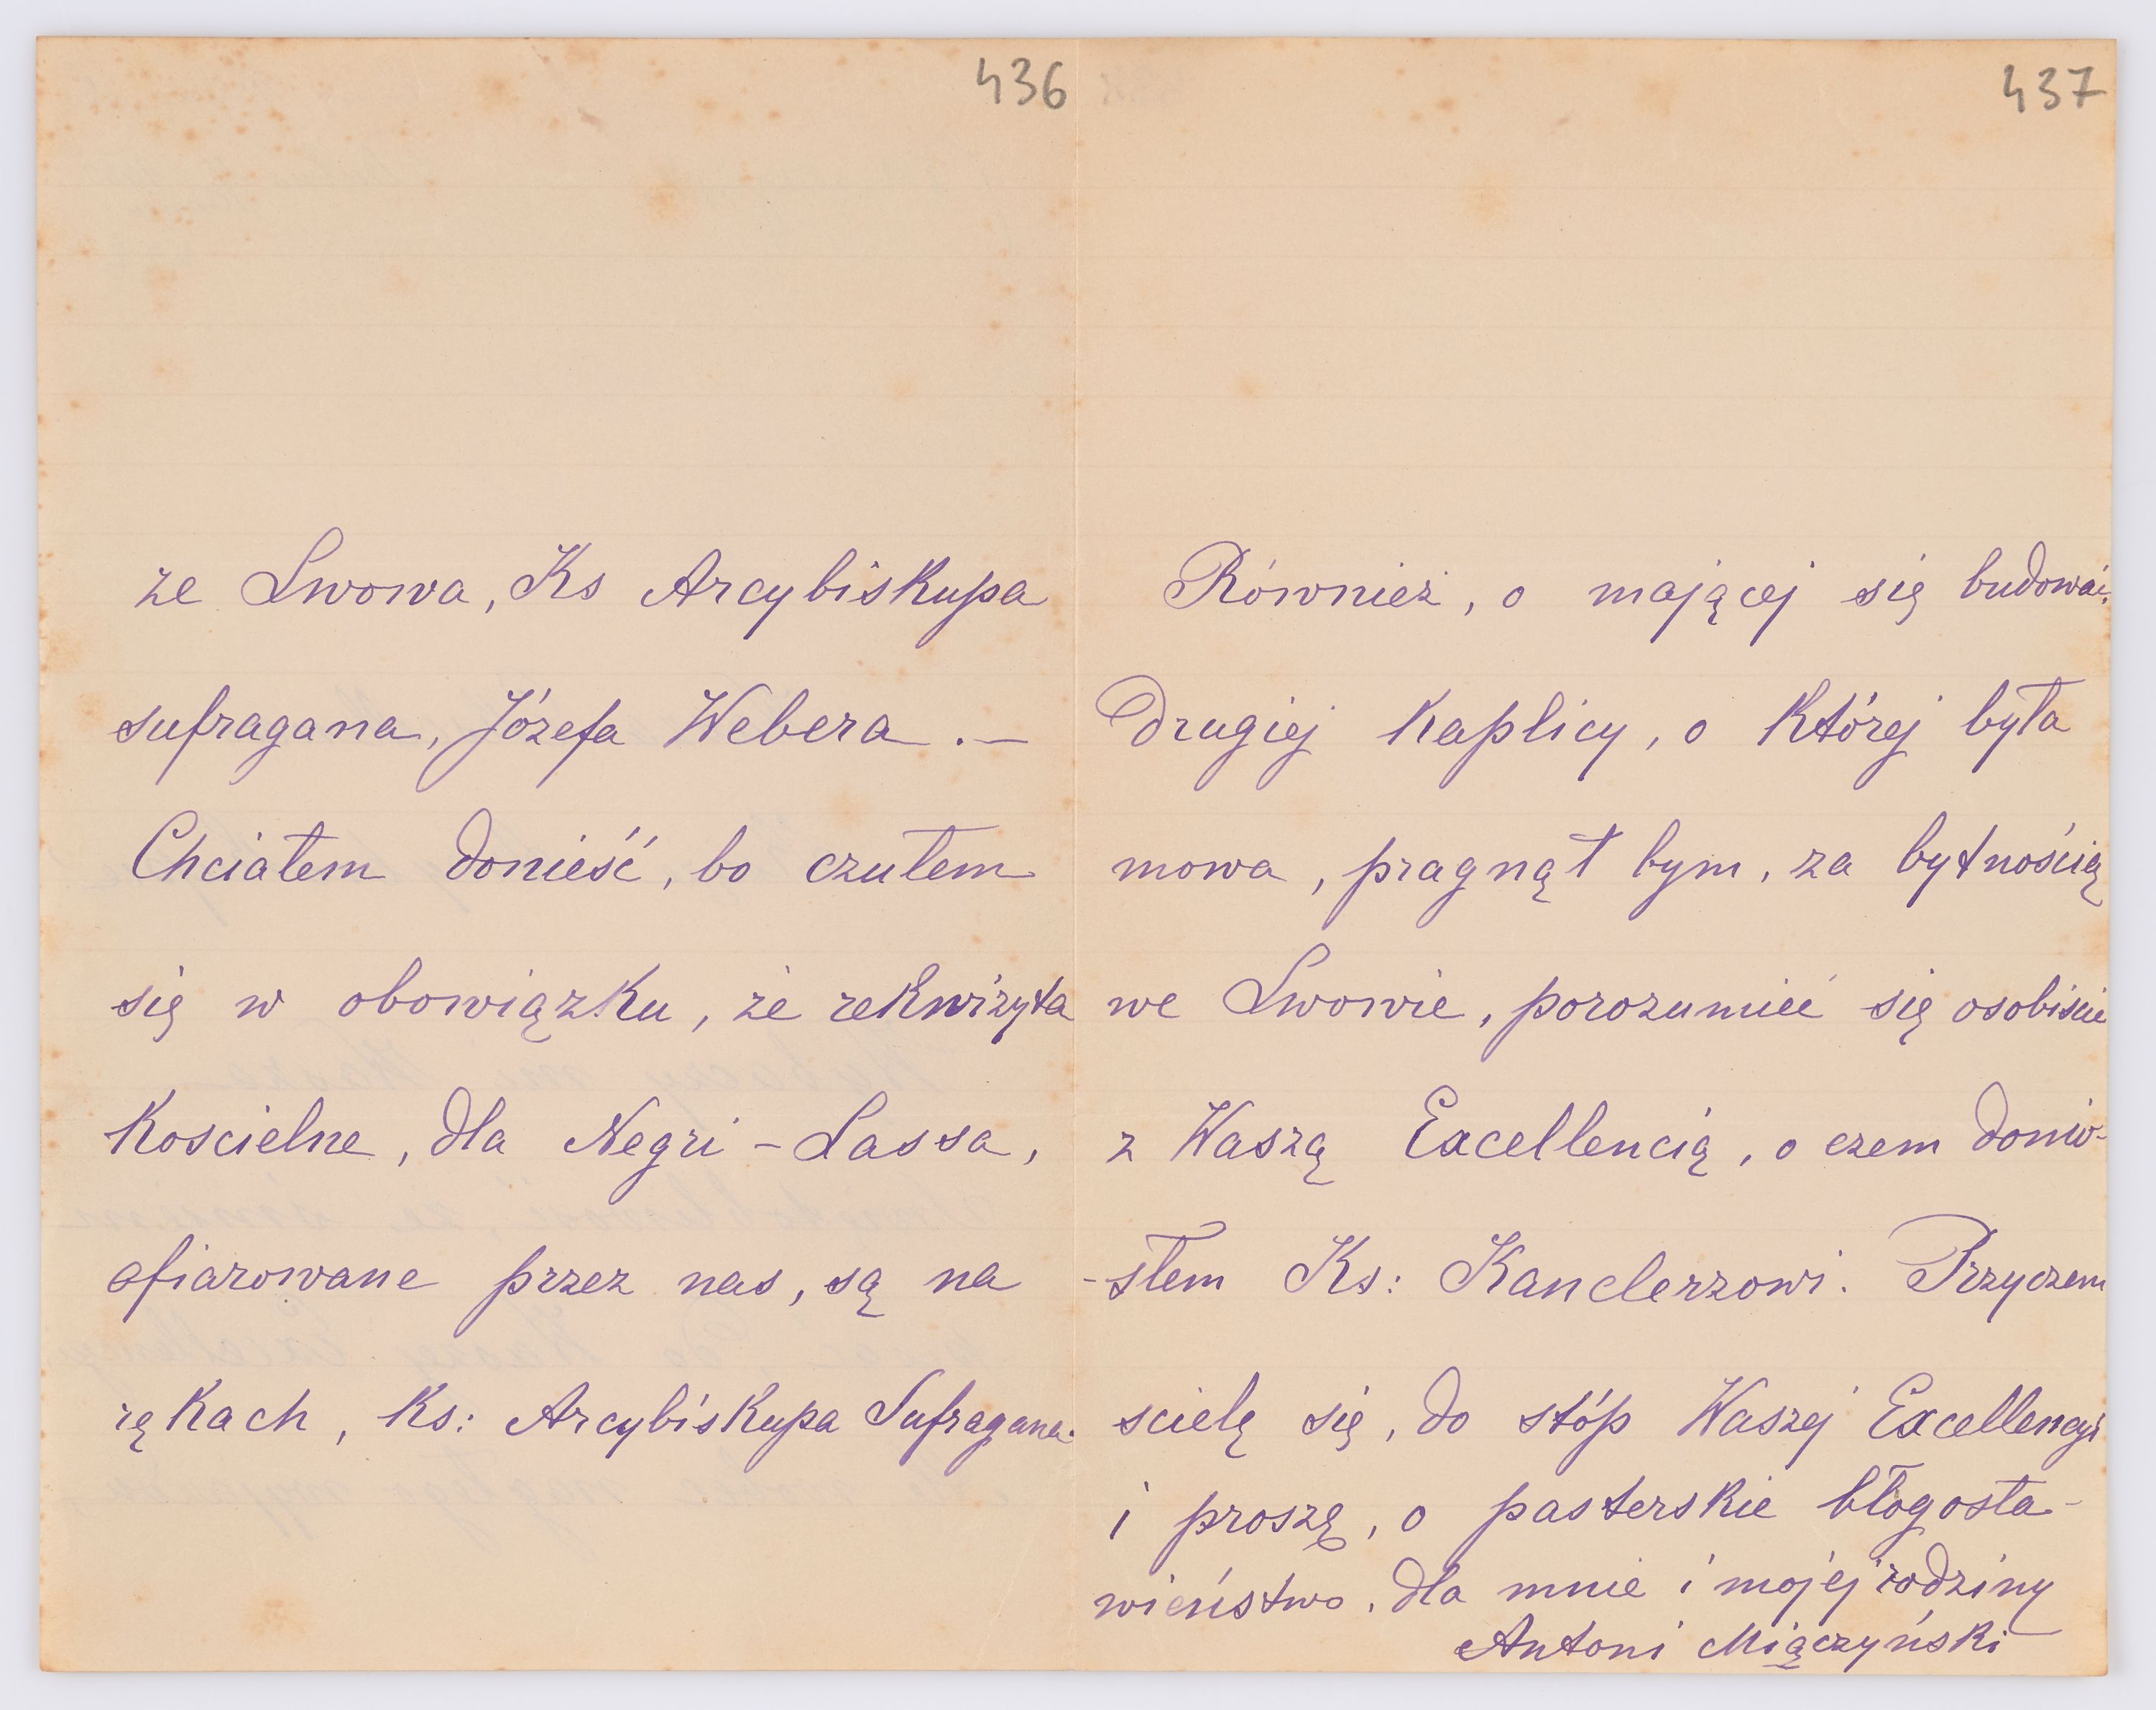 436
ze Lwowa, Ks Arcybiskupa
sufragana, Józefa Webera. —
Chciałem donieść, bo czułem
się w obowiązku, że rekwizyta
Koscielne, dla Negri - Lassa,
ofiarowane przez nas, są na
rękach, Ks: Arcybiskupa Sufragana.
437
Również, o mającej się budować
drugiej Kaplicy, o której była
mowa, pragnął bym, za bytnością
we Lwowie, porozumieć się osobiscie
z Waszą Excellencią, o czem donio-
-słem Ks: Kanclerzowi. Przyczem
scielę się, do stóp Waszej Excellencyi
i proszę, o pasterskie błogosła-
wieństwo, dla mnie i mojej rodziny
Antoni Miączyński